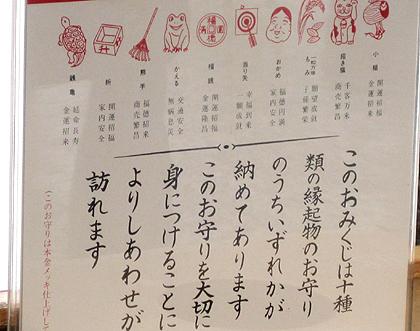 小槌
開運招福
金運招来
招き猫
千客万来
商売繁昌
一粒万倍
もみ
願望成就
子孫繁栄
おかめ
福徳円満
家内安全
当り矢
幸福到来
一願成就
福銭
開運招福
金運隆昌
かえる
交通安全
無病息災
熊手
福徳招来
商売繁昌
枡
開運招福
家内安全
銭亀
延命長寿
金運招来
このおみくじは十種
類の縁起物のお守り
のうちいずれかが
納めてあります
このお守りを大切に
身につけることに
よりしあわせが
訪れます
(このお守りは本金メッキ仕上げし